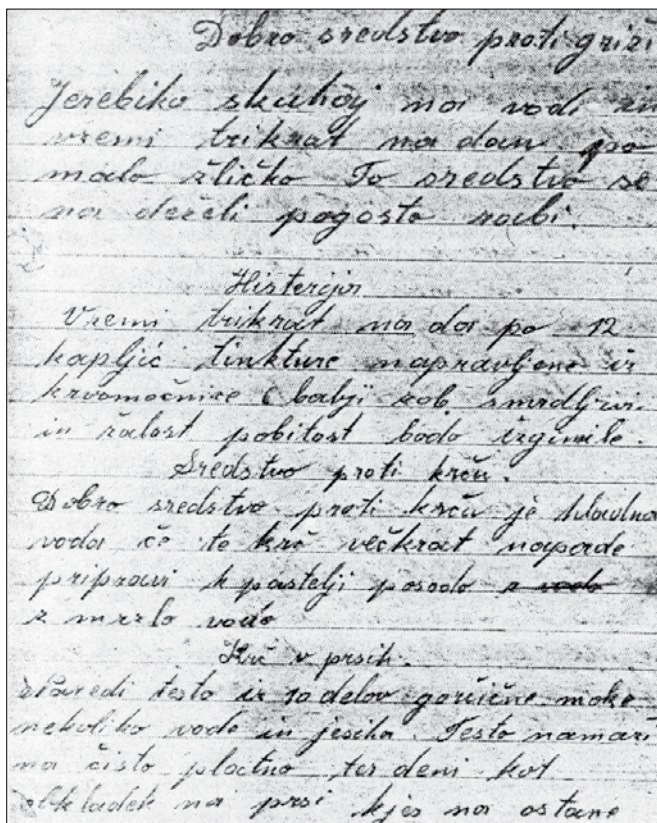 Dobro sredstvo proti griži
Jerebiko skuhaj na vodi in
vzemi trikrat na dan po
malo žličko To sredstvo se
na deželi pogosto rabi.
Histerija
Vzemi trikrat na da po 12
kapljic tinkture napravljene iz
krvomočnice (babji zob, smrdljivi
in žalost pobitost bodo izginile.
Sredstvo proti krču.
Dobro sredstvo proti krču je hladna
voda če te krč večkrat napade
pripravi k pastelji posodo z vodo
z mrzlo vodo
Krč v prsih.
naredi testo iz 10 delov gorčične moke
nekoliko vode in jesiha. Testo namaži
na čisto platno ter deni kot
obkladek na prsi kjer na ostane